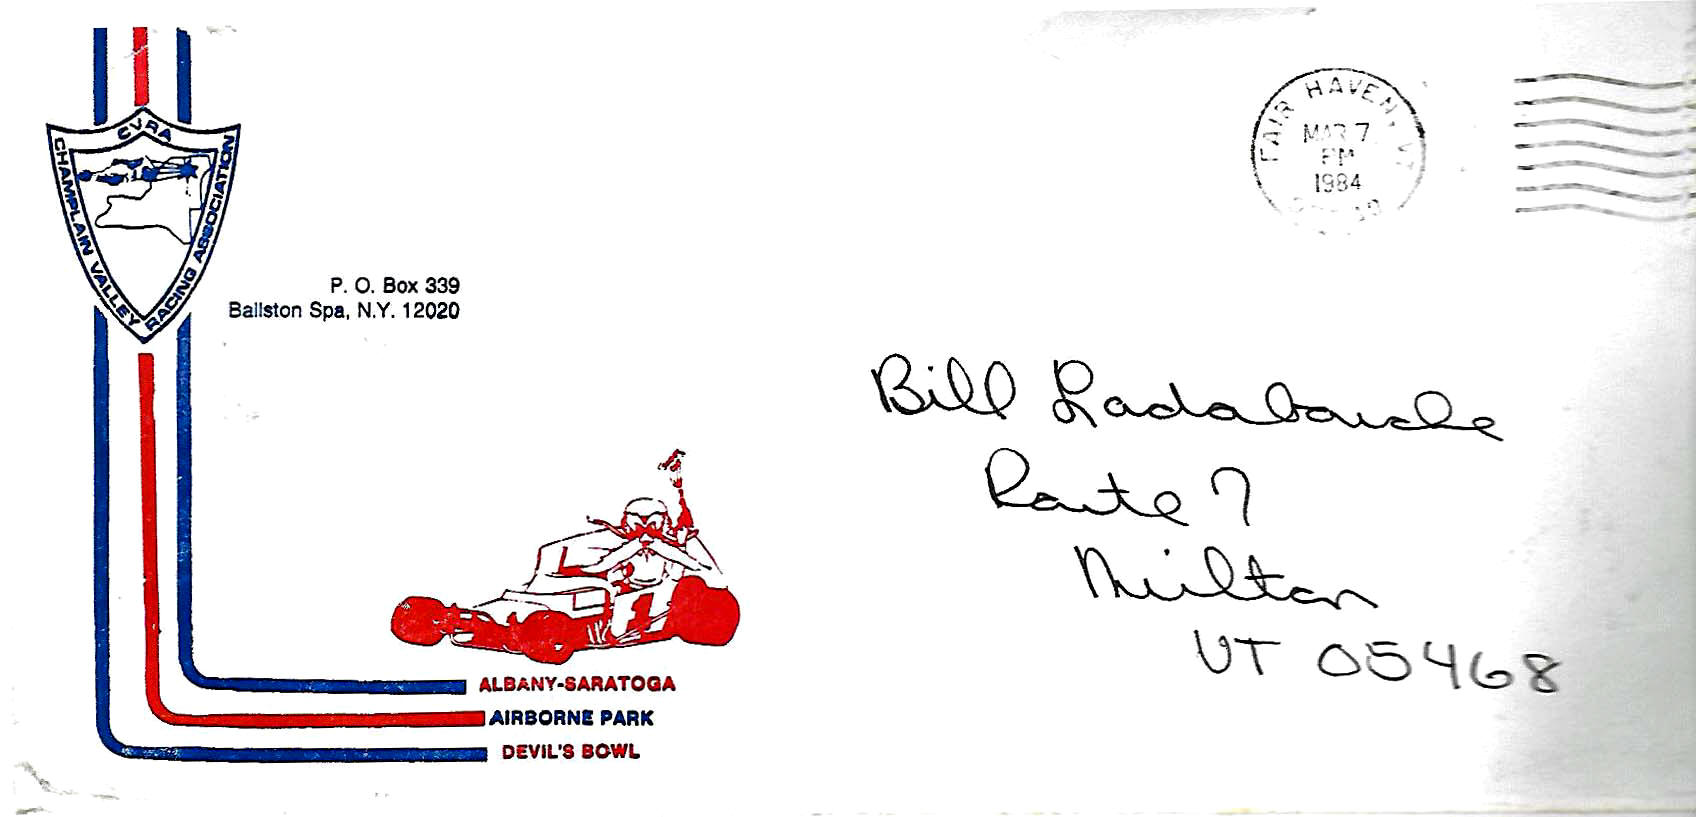 CVRA
CHAMPLAIN VALLEY RACING ASSOCIATION
P. O. Box 339
Ballston Spa, N.Y. 12020
FAIR HAVEN, VT
MAR 7
PM
1984
Bill Ladabouche
Route 7
Milton
VT 05468
1
ALBANY-SARATOGA
AIRBORNE PARK
DEVIL'S BOWL